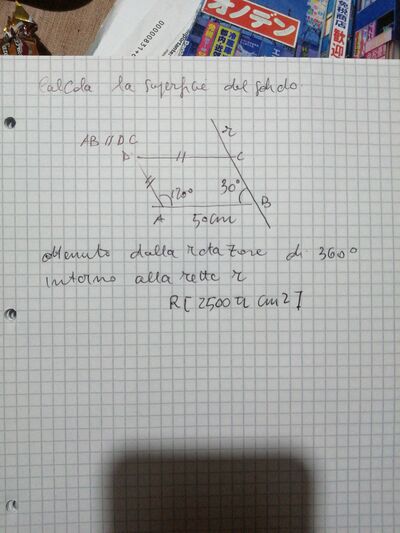 オノデン
免税商店
歓迎
000000831+
Calcola la superficie del solido.
AB // DC
r
D
//
C
//
120°
30°
A
B
50cm
ottenuto dalla rotazione di 360°
intorno alla retta r
R [2500 π cm2]